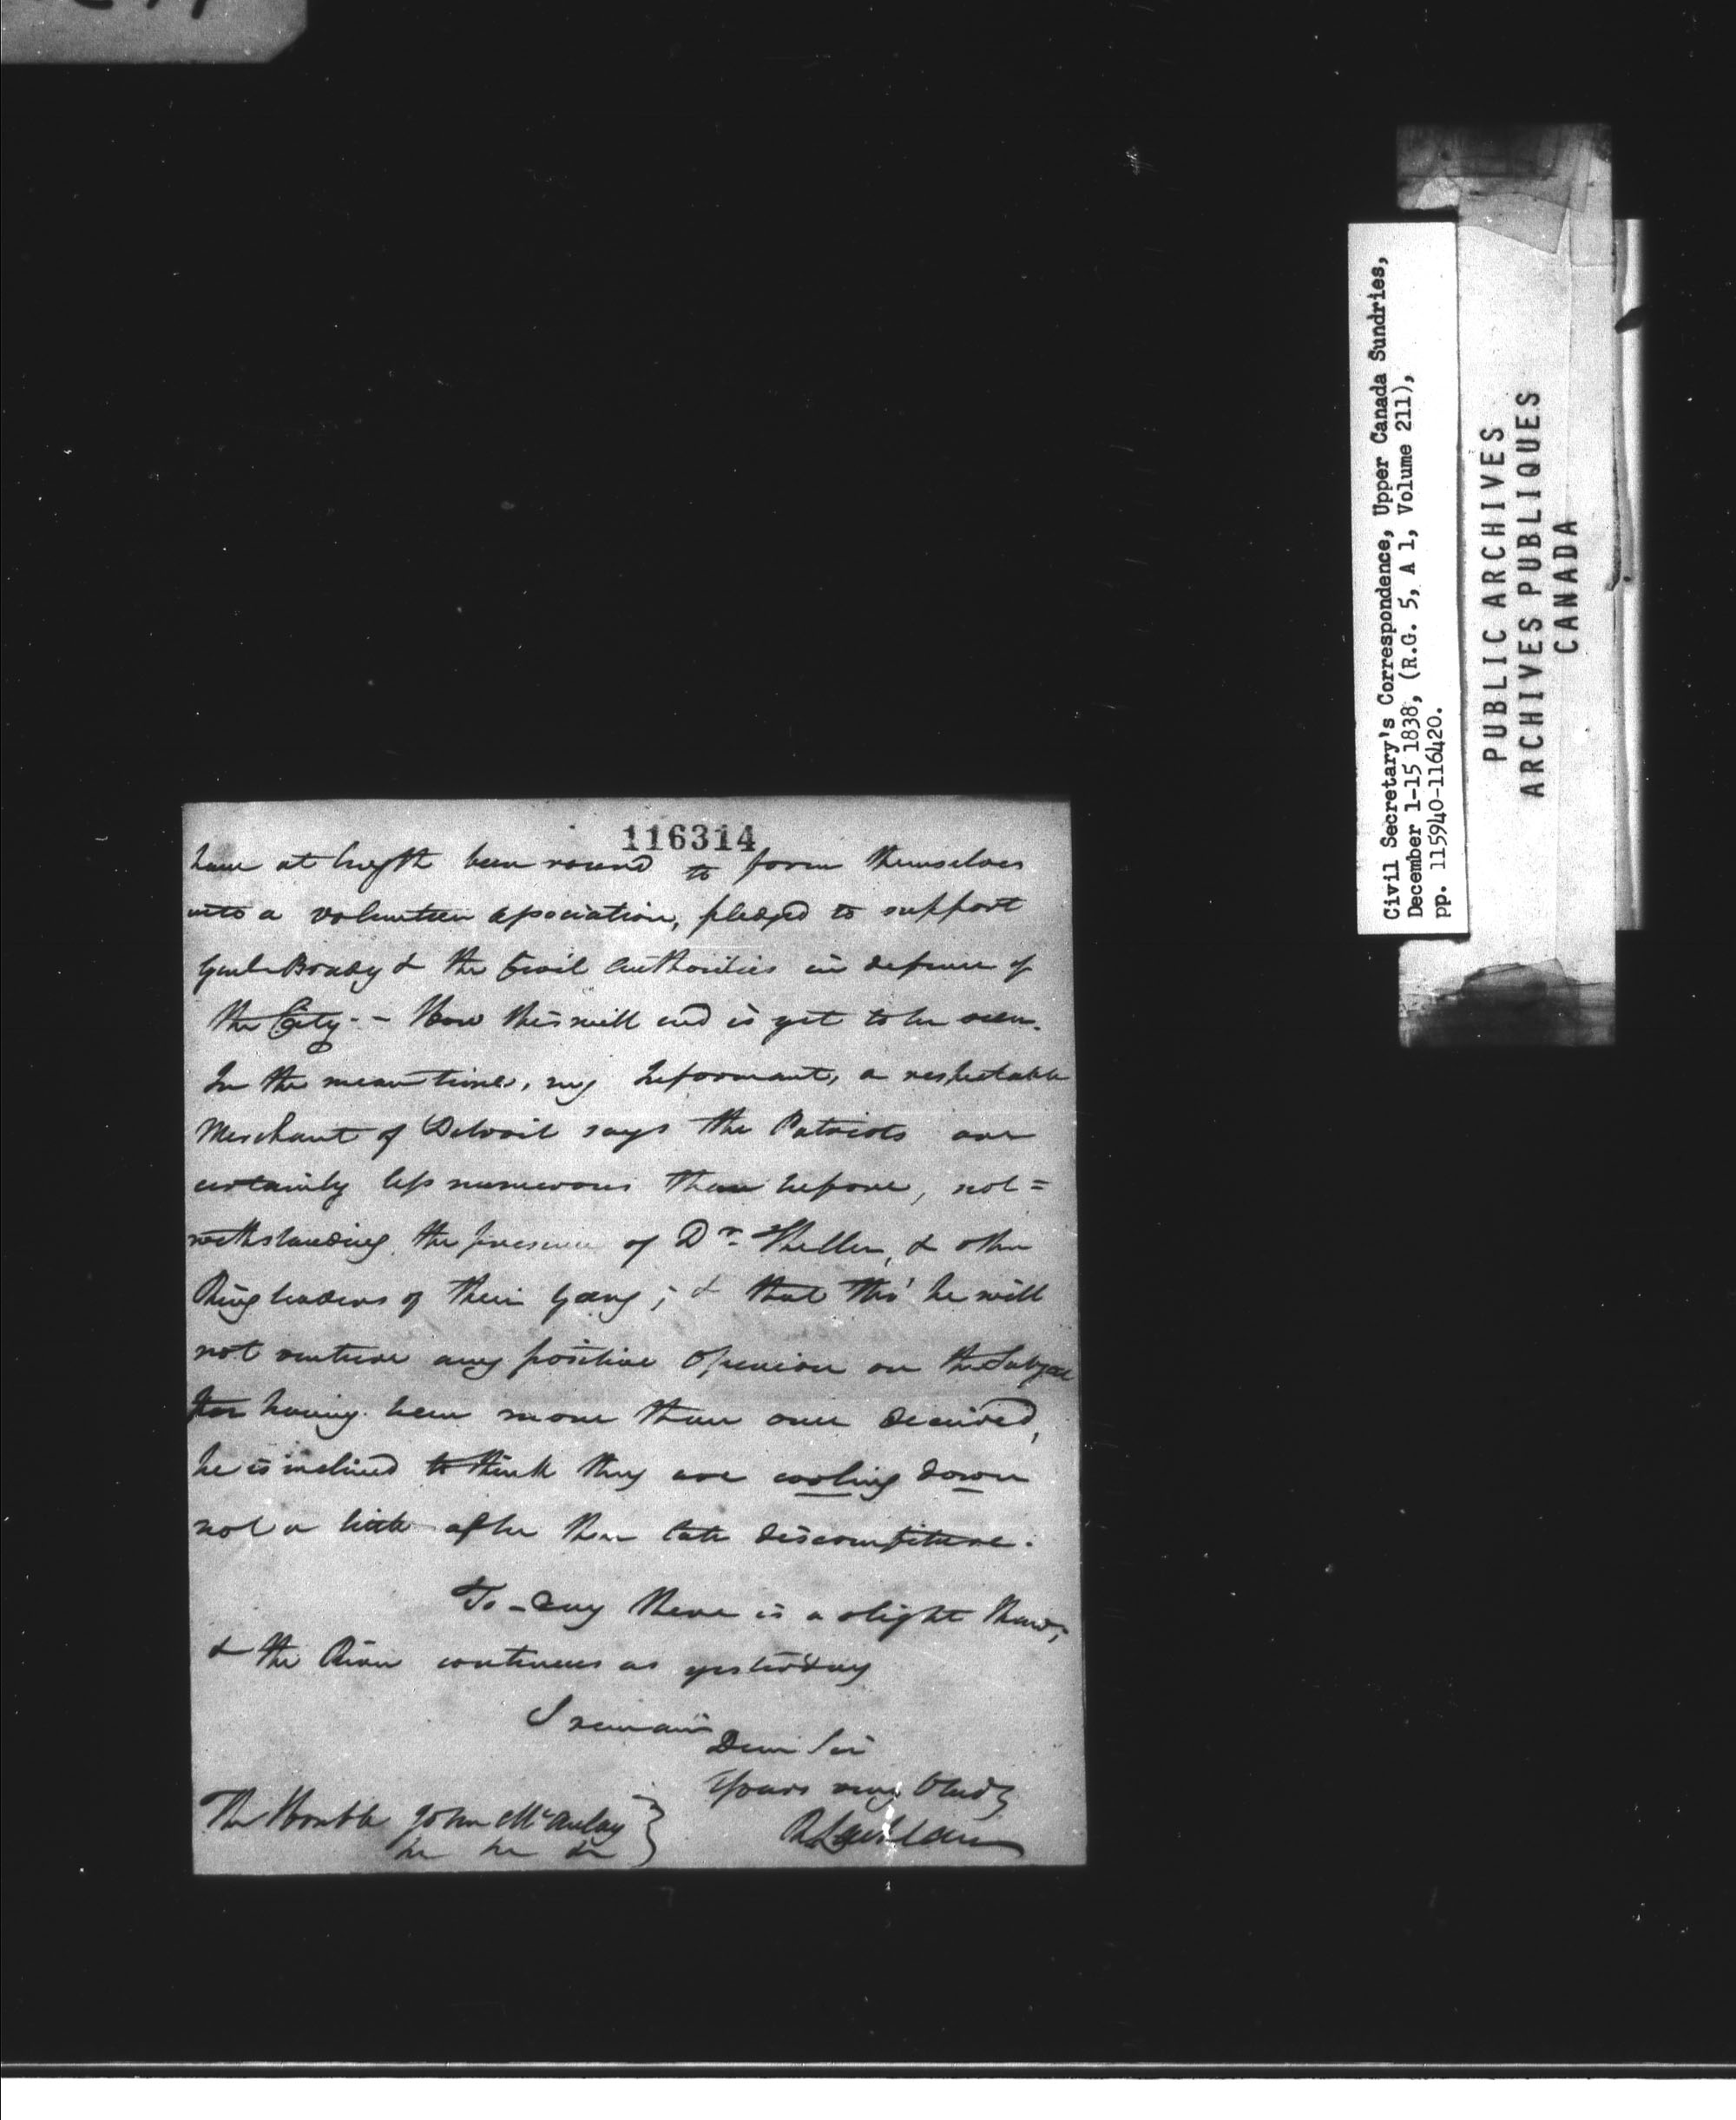 116314
have at length been roused to form themselves
into a volunteer association, pledged to support
Genl. Brady & the Civil Authorities in defence of
the City. - How this will end is yet to be seen.
In the mean time, my Informant, a respectable
Merchant of Detroit says the Patriots are
certainly less numerous than before, not=
withstanding the presence of Dr. Theller, & other
Ringleaders of their Gang; & that tho' he will
not venture any positive Opinion on the Subject
for having been more than once deceived,
he is inclined to think they are cooling down
not a little after their late discomfiture.
To-day there is a slight thaw;
& the River continues as yesterday
I remain
Dear Sir
Yours very
The Honble John McAulay
Civil Secretary's Correspondence, Upper Canada Sundries,
December 1-15 1838, (R.G. 5, A 1, Volume 211),
pp. 115940-116420.
PUBLIC ARCHIVES
ARCHIVES PUBLIQUES
CANADA